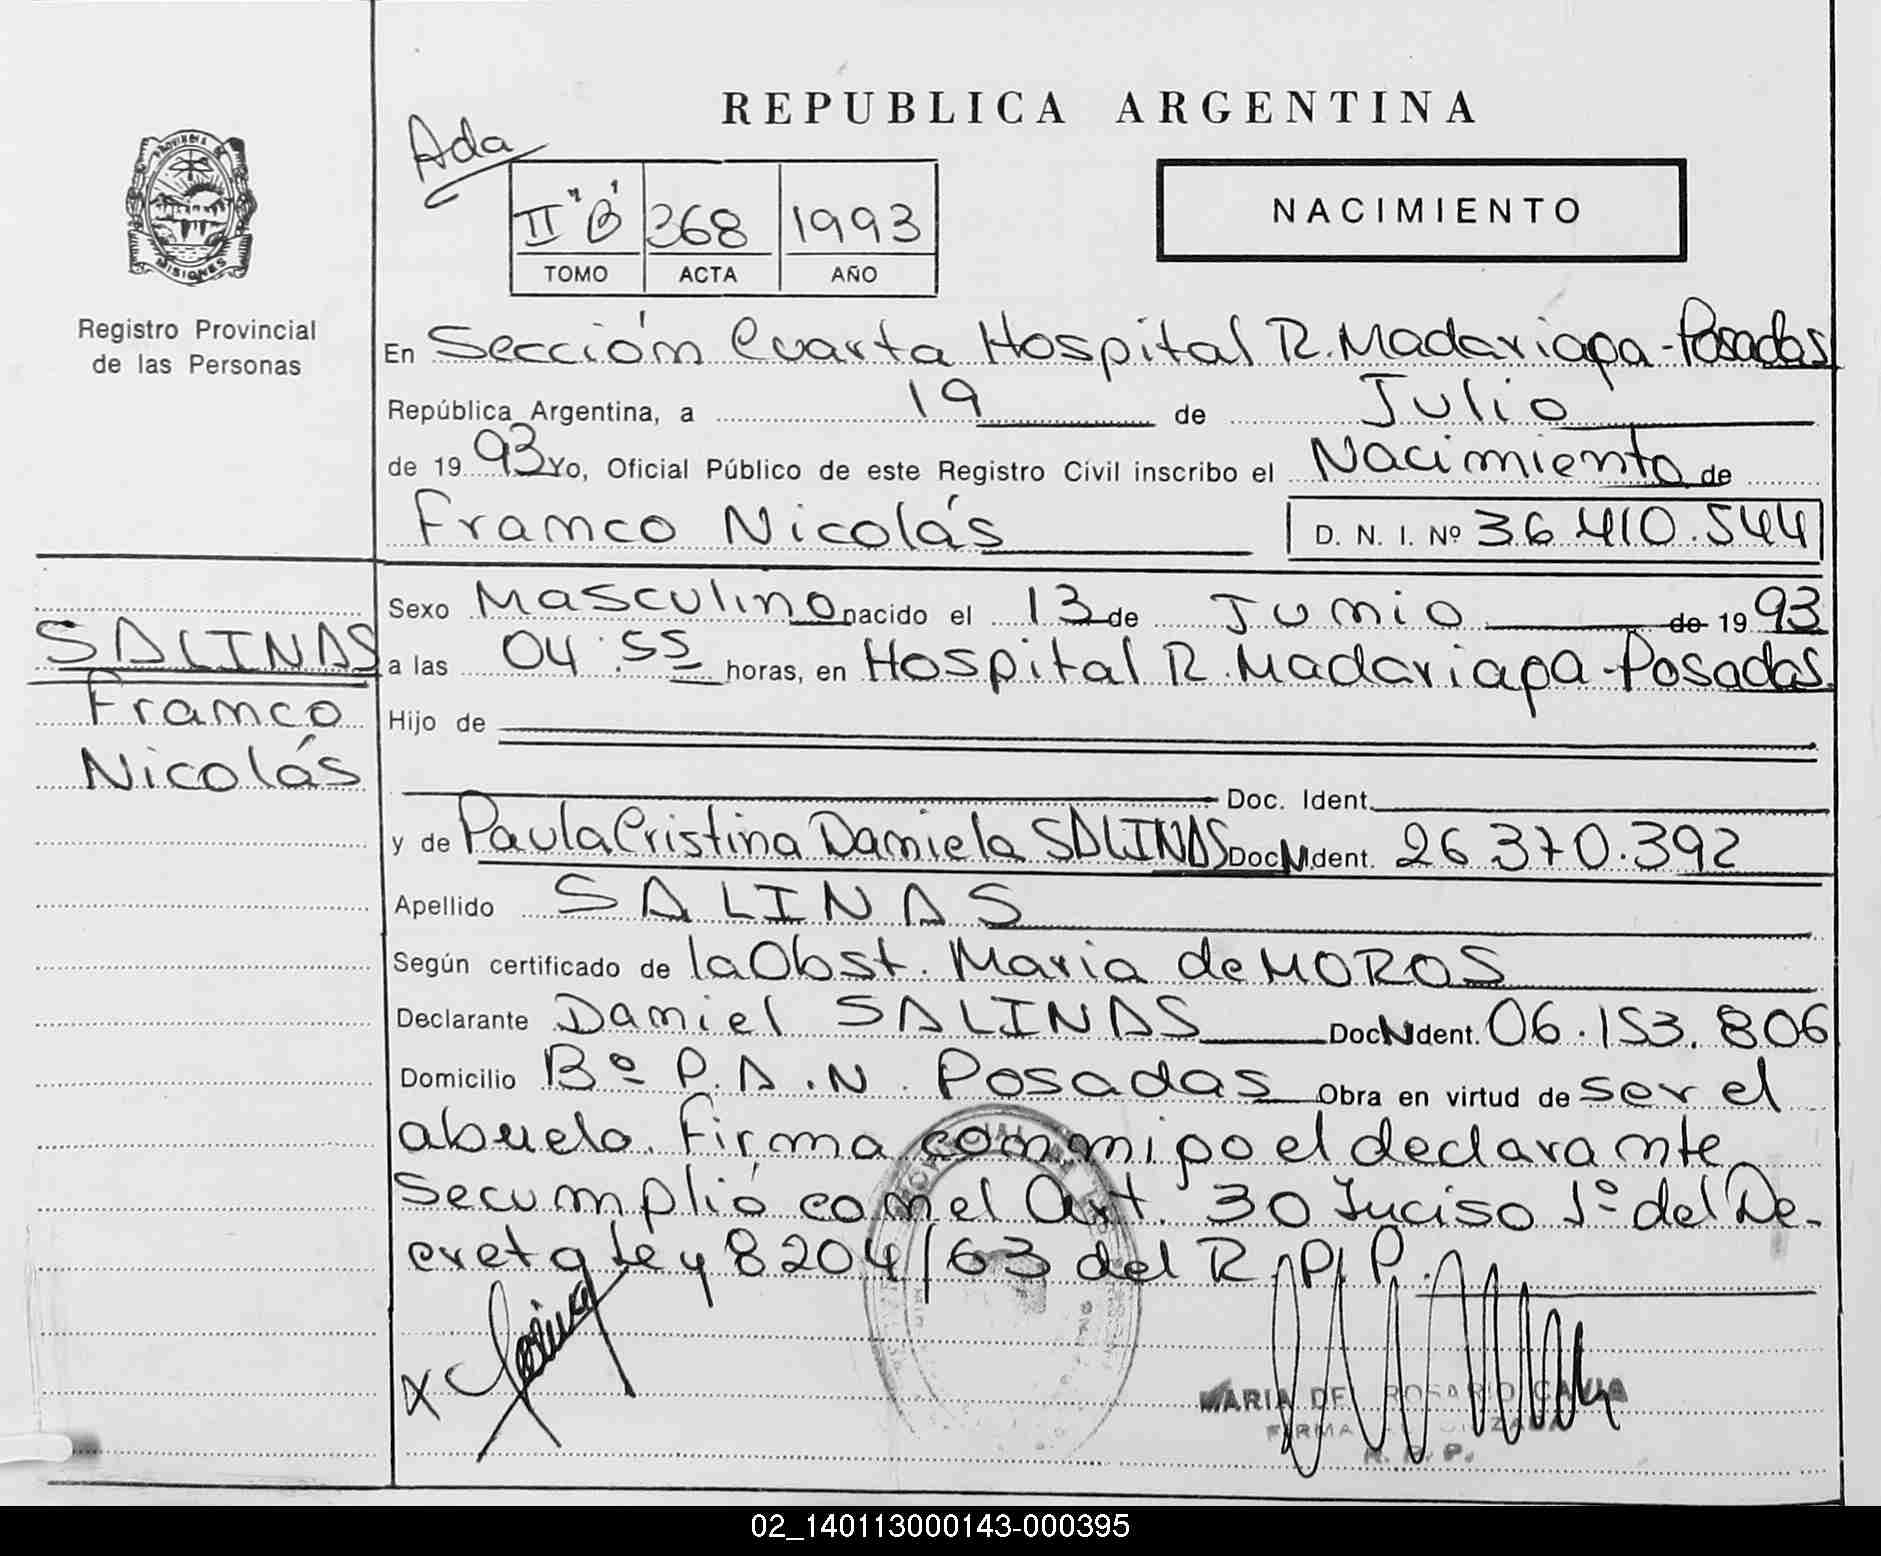 REPUBLICA ARGENTINA
Ada
PROVINCIA DE
MISIONES
Registro Provincial
de las Personas
II "B" 368 1993
TOMO ACTA AÑO
NACIMIENTO
En Sección Cuarta Hospital R. Madariaga - Posadas
República Argentina, a 19 de Julio
de 1993 Yo, Oficial Público de este Registro Civil inscribo el Nacimiento de
Franco Nicolás D. N. I. Nº 36.410.544
SALINAS
Franco
Nicolás
Sexo Masculino nacido el 13 de Junio de 1993
a las 04:55 horas, en Hospital R. Madariaga - Posadas.
Hijo de
Doc. Ident.
y de Paula Cristina Daniela SALINAS Doc N Ident. 26 370.392
Apellido SALINAS
Según certificado de la Obst. Maria de MOROS
Declarante Daniel SALINAS Doc N Ident. 06.153.806
Domicilio Bº P.A.N. Posadas Obra en virtud de ser el
abuelo. Firma conmigo el declarante
Se cumplió con el Art. 30 Inciso 1º del De-
creto Ley 8204/63 del R.P.P.
MARIA DEL ROSARIO CAVIA
FIRMA AUTORIZADA
R. P. P.
02_140113000143-000395